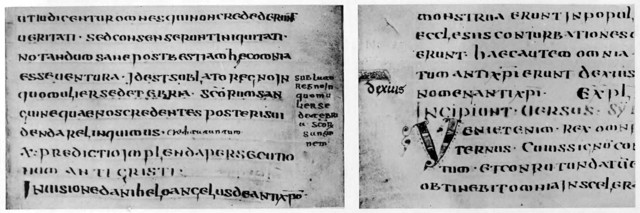 utiudicentur omnes qui non credederunt
ueritati · sed consenserunt iniquitati ·
notandum sane post bestiam hec omnia
esse uentura · idest sublato regno in
quo mulier sedet ebria · scorum san
guine quae nos credentes posteris ui
denda relinquimus ·
x · predictio implenda persecutio
num anti cristi ·
In uisione danihelo angelus de antixpo ·
regno in
quo mu
lier se
det ebri
monstrua erunt in popul
ecclesiis conturbationes
erunt · haec autem omnia
tum antixpi erunt dexius
nomen antixpi · Expl
dexius
Incipiunt · uersus · sy
Ueniet enim · Rex omni
ternus ·
obtinebit omnia insceler